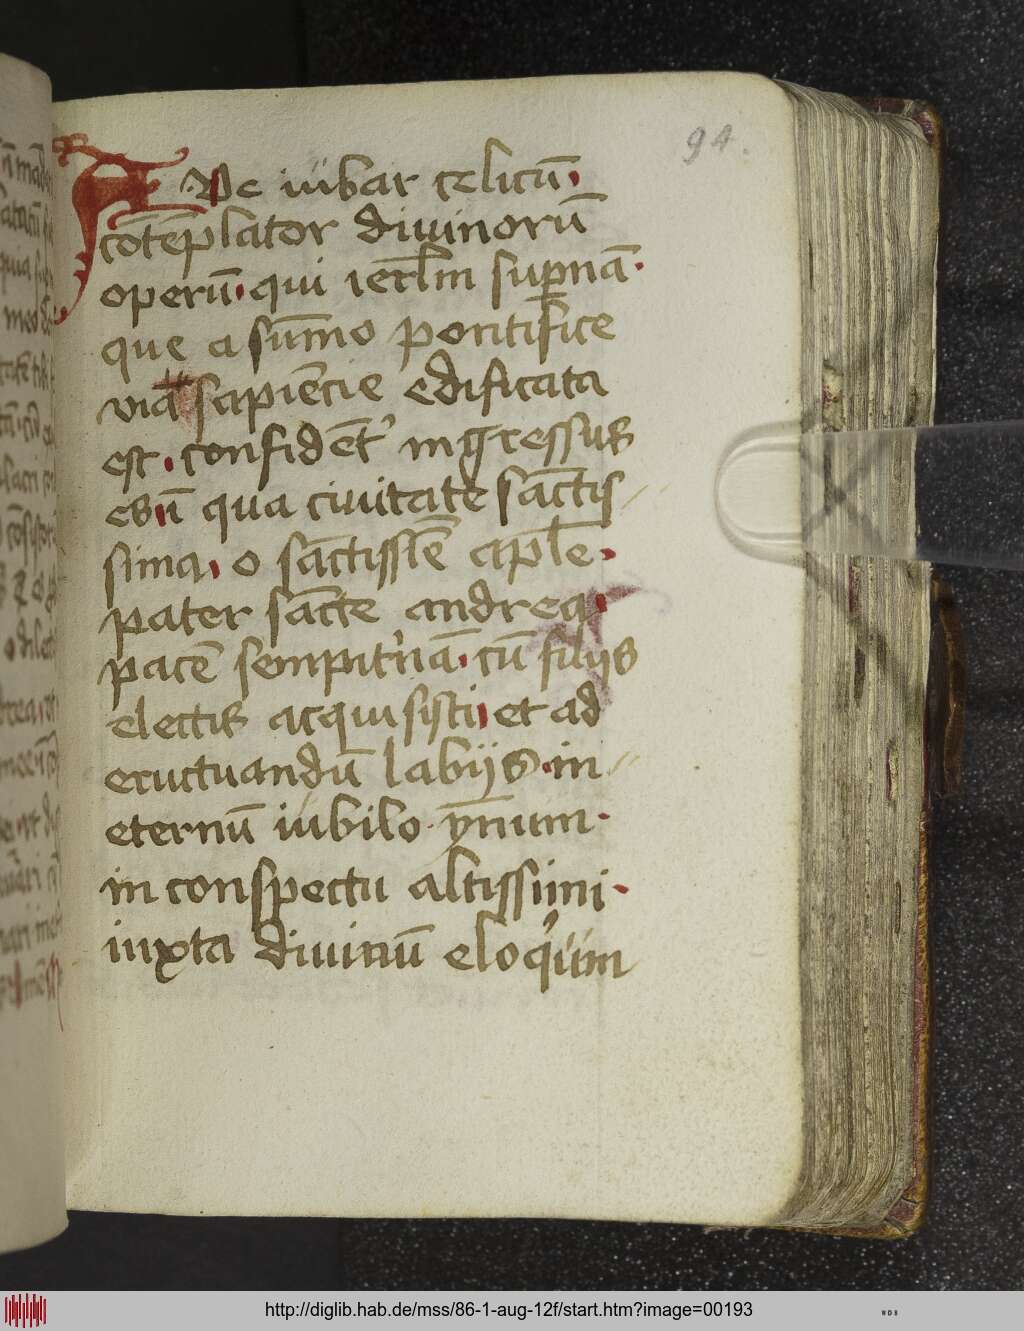 94.
AVe iubar celicū·
cōtēplator diuinorū
operū· qui ierl̄m sup̄nā·
que a sūmo pontifice
via sapiēcie edificata
est· confidēt' ingressus
es· ī qua ciuitate sāctis
sima· o sāctissīē ap̄le·
pater sācte andrea·
pacē sempit'nā· cū filijs
electis acquisisti· et ad
eructuandū labijs· in
eternū iubilo ẏmnum·
in conspectu altissimi·
iuxta diuinū eloq'um
http://diglib.hab.de/mss/86-1-aug-12f/start.htm?image=00193